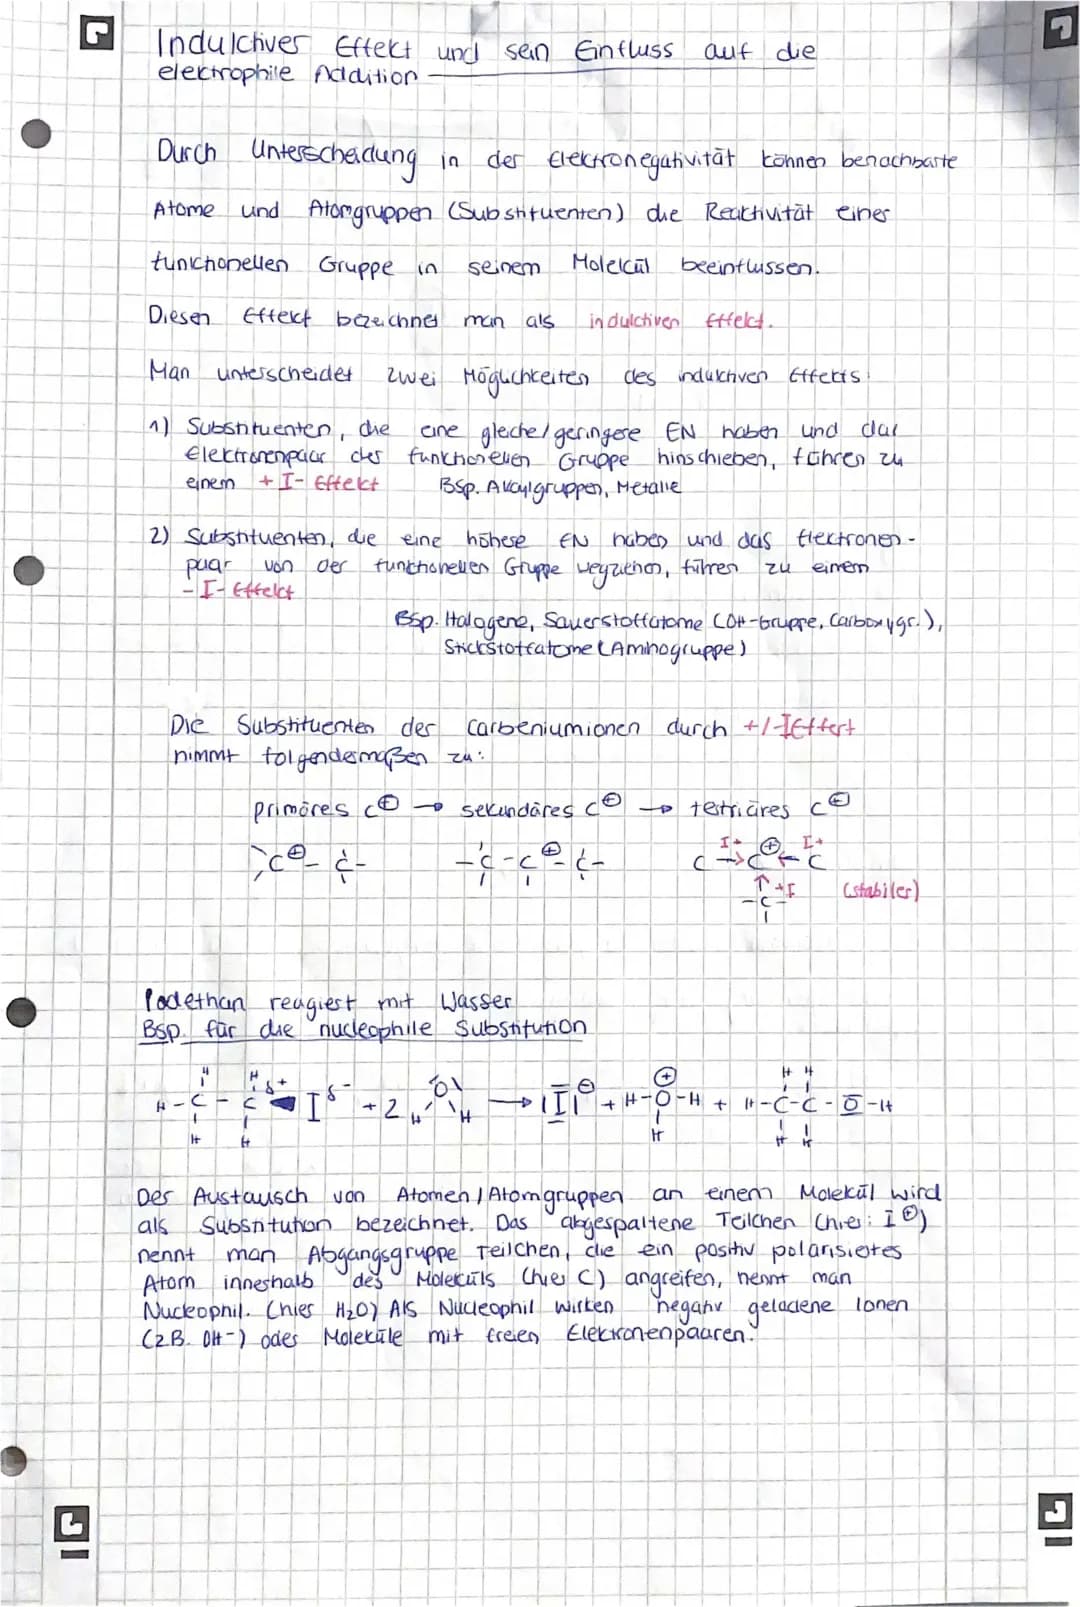 Induktiver Effekt und sein Einfluss auf die
elektrophile Addition
Durch Unterscheidung in der Elektronegativität können benachbarte
Atome und Atomgruppen (Substituenten) die Reaktivität einer
funktionellen Gruppe in seinem Molekül beeinflussen.
Diesen Effekt bezeichnet man als induktiven Effekt.
Man unterscheidet zwei Möglichkeiten des induktiven Effekts:
1) Substituenten, die eine gleiche/geringere EN haben und das
Elektronenpaar der funktionellen Gruppe hinschieben, führen zu
einem +I-Effekt Bsp. Alkylgruppen, Metalle
2) Substituenten, die eine höhere EN haben und das Elektronen-
paar von der funktionellen Gruppe wegziehen, führen zu einem
-I-Effekt
Bsp. Halogene, Sauerstoffatome (OH-Gruppe, Carboxygr.),
Stickstoffatome (Aminogruppe)
Die Substituenten der Carbeniumionen durch +/-I Effekt
nimmt folgendermaßen zu:
primäres C⊕ → sekundäres C⊕ → tertriäres C⊕
C⊕-C- -C-C⊕-C- C→C⊕←C
I+ I+
↑+I (stabiler)
-C-
Iodethan reagiert mit Wasser
Bsp. für die nucleophile Substitution
H H H H
H-C-C δ+ I δ- + 2 H O H → |I|⊖ + H-O⊕-H + H-C-C-O-H
H H H H H
Der Austausch von Atomen/Atomgruppen an einem Molekül wird
als Substitution bezeichnet. Das abgespaltene Teilchen (hier: I⊖)
nennt man Abgangsgruppe Teilchen, die ein positiv polarisiertes
Atom innerhalb des Moleküls (hier C) angreifen, nennt man
Nucleophil. (hier H₂O) Als Nucleophil wirken negativ geladene Ionen
(z.B. OH-) oder Moleküle mit freien Elektronenpaaren.